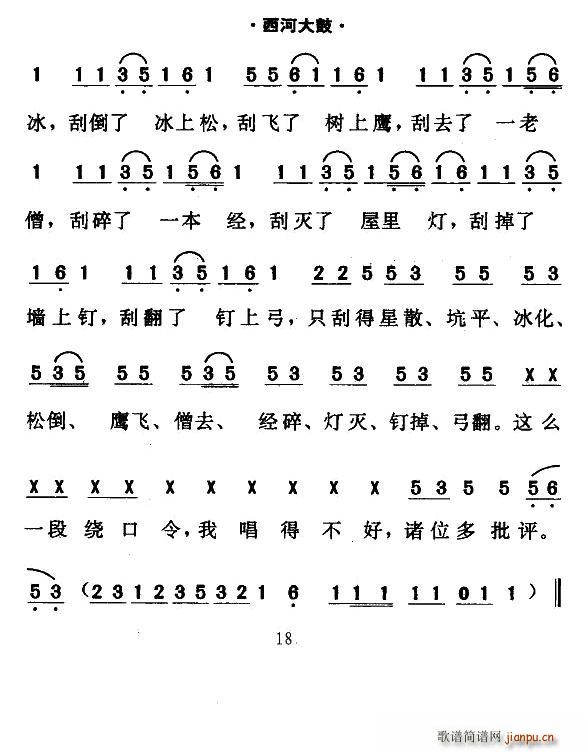 ·西河大鼓·
1 1 1 3 5 1 6 1 5 5 6 1 1 6 1 1 1 3 5 1 5 6
冰，刮倒了 冰上松，刮飞了 树上鹰，刮去了 一老
1 1 1 3 5 1 5 6 1 1 1 3 5 1 5 6 1 6 1 1 3 5
僧，刮碎了 一本 经，刮灭了 屋里 灯，刮掉了
1 6 1 1 1 3 5 1 6 1 2 2 5 5 3 5 5 5 3
墙上钉，刮翻了 钉上弓，只刮得星散、坑平、冰化、
5 3 5 5 5 5 3 5 5 3 5 3 5 3 5 5 X X
松倒、 鹰飞、僧去、 经碎、灯灭、钉掉、弓翻。这么
X X X X X X X X X 5 3 5 5 5 6
一段绕口令，我唱得不好，诸位多批评。
5 3 （2 3 1 2 3 5 3 2 1 6 1 1 1 1 1 0 1 1）
18
歌谱简谱网
jianpu.cn